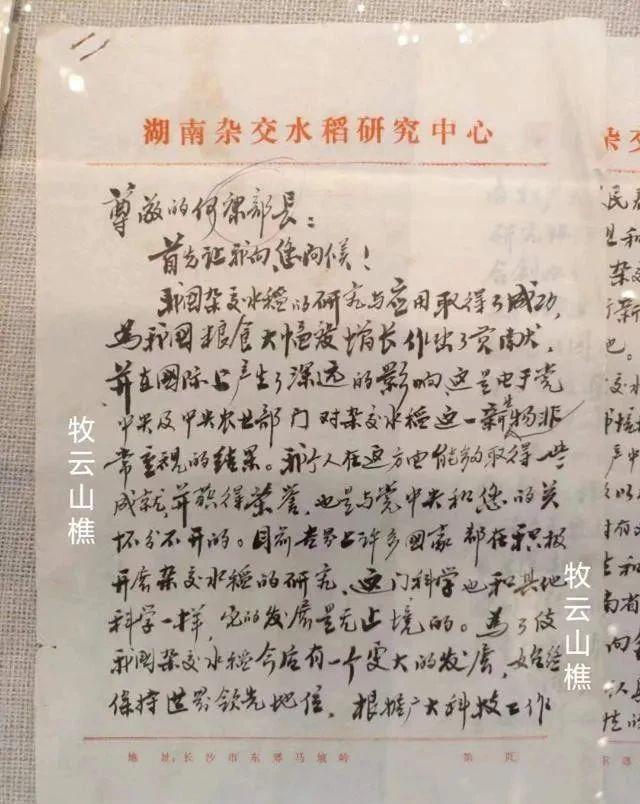 湖南杂交水稻研究中心
尊敬的何康部长：
首先让我向您问候！
我国杂交水稻的研究与应用取得了成功，
为我国粮食大幅度增长作出了贡献，
并在国际上产生了深远的影响，这是由于党
中央及中央农业部门对杂交水稻这一新生事物非
常重视的结果。我个人在这方面能够取得一些
成就，并获得荣誉，也是与党中央和您的关
怀分不开的。目前世界上许多国家都在积极
开展杂交水稻的研究，这门科学也和其他
科学一样，它的发展是无止境的。为了使
我国杂交水稻今后有一个更大的发展，始终
保持世界领先地位，根据广大科技工作
地址：长沙市东郊马坡岭 第 页
牧云山樵
牧云山樵